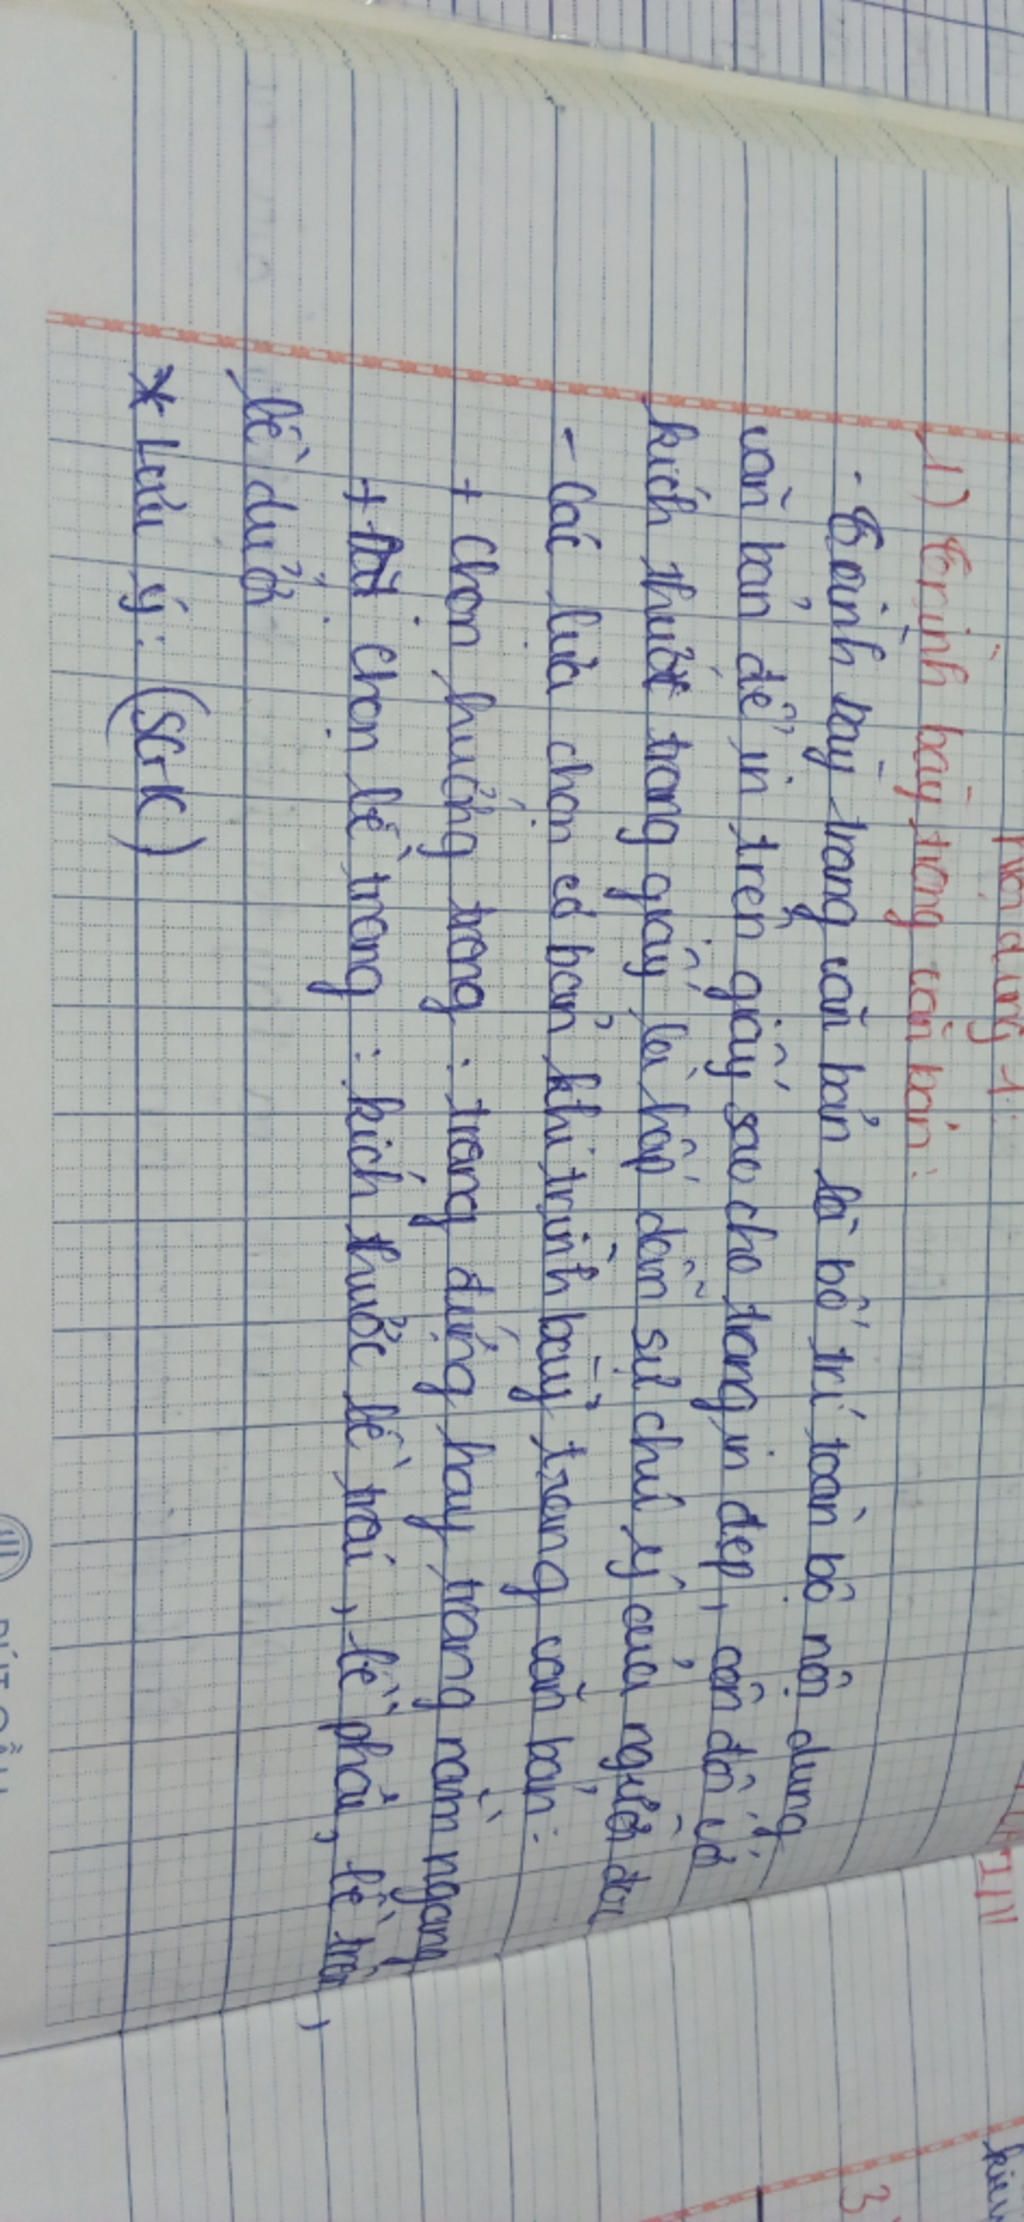 dung 1:
1) Trình bày trang văn bản:
- Trình bày trang văn bản là bố trí toàn bộ nội dung
văn bản để in trên giấy sao cho trang in đẹp, cân đối với
kích thước trang giấy là hấp dẫn sự chú ý của người đọc
- Các lựa chọn cơ bản khi trình bày trang văn bản:
+ Chọn hướng trang: trang đứng hay trang nằm ngang
+ Chọn lề trang: kích thước lề trái, lề phải, lề trên,
lề dưới
* Lưu ý: (SGK)
3